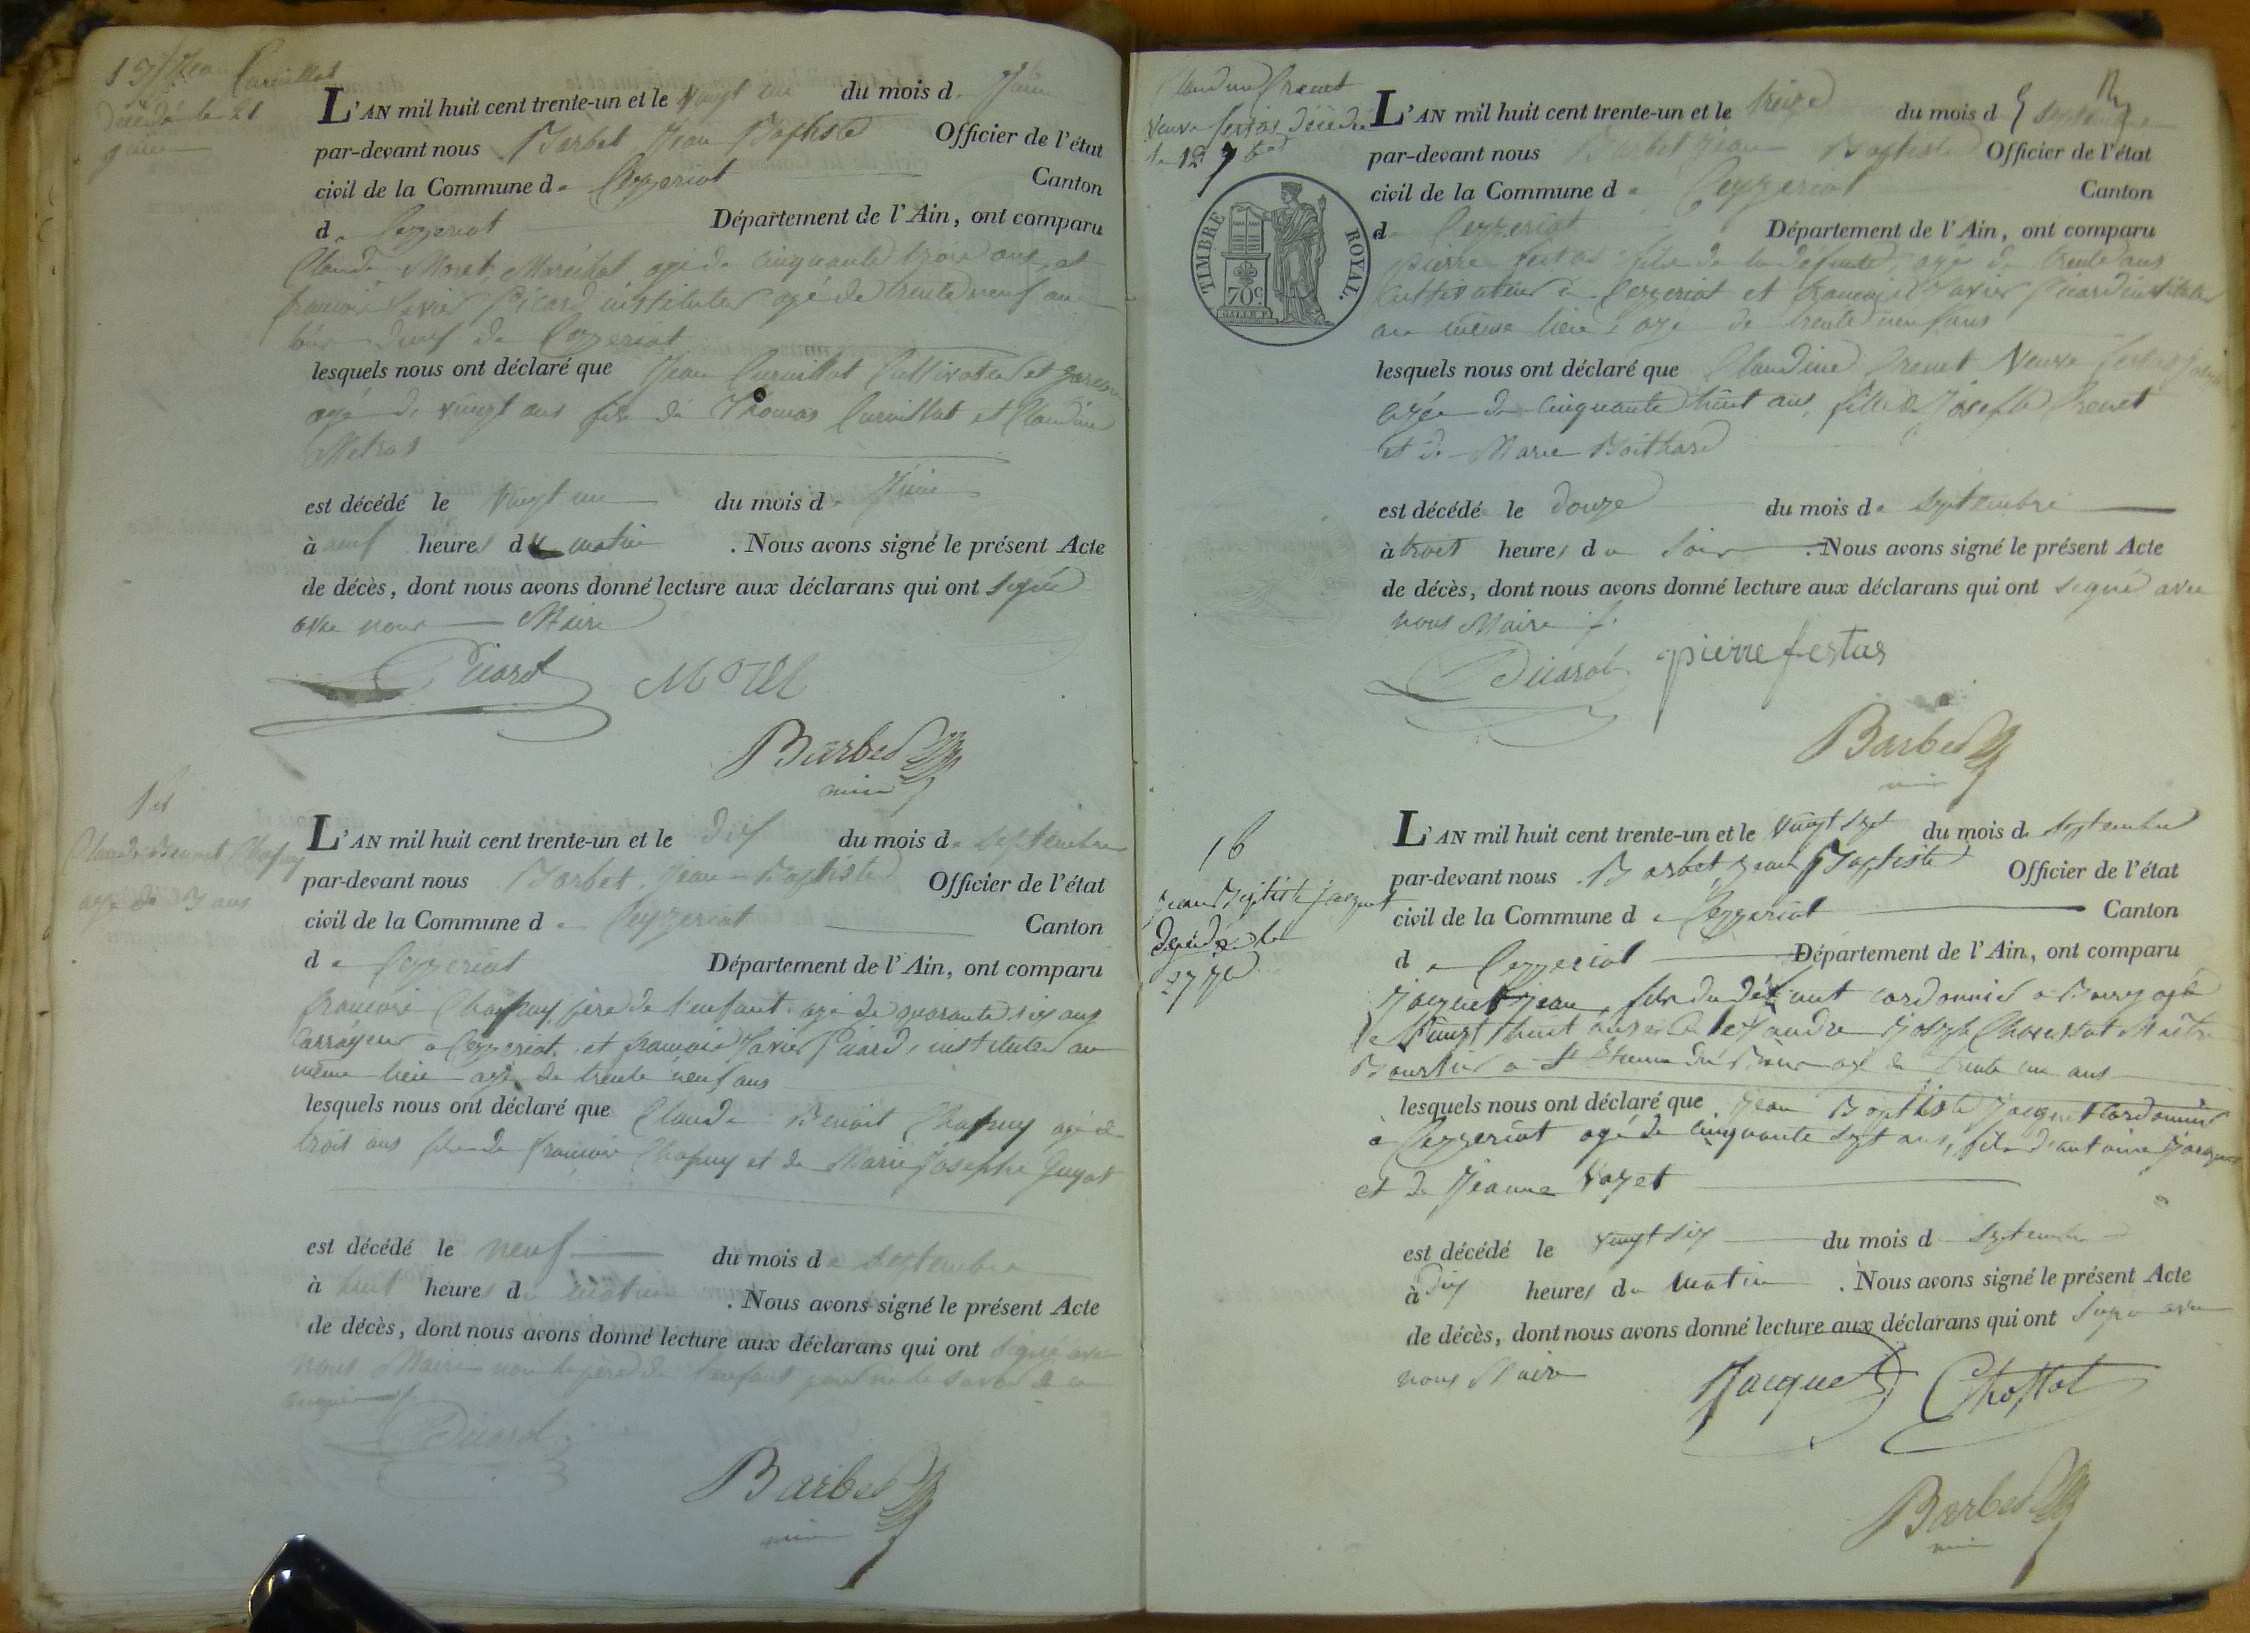 Jean Curvillat
décédé le 21
juin
L'AN mil huit cent trente-un et le vingt un du mois de juin
par-devant nous Barbet Jean Baptiste Officier de l'état
civil de la Commune de Ceyzeriat Canton
de Ceyzeriat Département de l'Ain, ont comparu
Claude Morel, Maréchal agé de cinquante trois ans, et
francois Xavier Picard instituteur agé de trente neuf ans
tous deux de Ceyzeriat
lesquels nous ont déclaré que Jean Curvillat Cultivateur et garçon
agé de vingt ans fils de Thomas Curvillat et Claudine
Metras
est décédé le vingt un du mois de Juin
à neuf heures du matin . Nous avons signé le présent Acte
de décès, dont nous avons donné lecture aux déclarans qui ont signé
avec nous Maire
Picard Morel
Barbet
maire
Claude Benoit Chapuy
agé de 3 ans
L'AN mil huit cent trente-un et le dix du mois de septembre
par-devant nous Barbet Jean-Baptiste Officier de l'état
civil de la Commune de Ceyzeriat Canton
de Ceyzeriat Département de l'Ain, ont comparu
francois Chapuy, père de l'enfant agé de quarante six ans
à Ceyzeriat, et francois Xavier Picard, instituteur au
même lieu agé de trente neuf ans
lesquels nous ont déclaré que Claude Benoit Chapuy agé de
trois ans fils de francois Chapuy et de Marie Josephe Guyot
est décédé le neuf du mois de septembre
à huit heures du matin . Nous avons signé le présent Acte
de décès, dont nous avons donné lecture aux déclarans qui ont signé avec
nous Maire non le père de l'enfant pour ne le savoir de ce
enquis
Picard
Barbet
maire
Claudine
Veuve festas décédée
le 12 7bre
TIMBRE ROYAL.
70c
L'AN mil huit cent trente-un et le treize du mois de septembre
par-devant nous Barbet Jean Baptiste Officier de l'état
civil de la Commune de Ceyzeriat Canton
de Ceyzeriat Département de l'Ain, ont comparu
pierre festas fils de la defunte, agé de trente ans
Cultivateur à Ceyzeriat et francois Xavier Picard instituteur
au même lieu agé de trente neuf ans
lesquels nous ont déclaré que Claudine Veuve festas
agée de cinquante huit ans, fille de Joseph
et de Marie
est décédé le douze du mois de septembre
à trois heures du soir . Nous avons signé le présent Acte
de décès, dont nous avons donné lecture aux déclarans qui ont signé avec
nous Maire
Picard pierre festas
Barbet
16
Jean Baptiste Jacquet
décédé le
27 7bre
L'AN mil huit cent trente-un et le vingt sept du mois de septembre
par-devant nous Barbet Jean Baptiste Officier de l'état
civil de la Commune de Ceyzeriat Canton
de Ceyzeriat Département de l'Ain, ont comparu
Jacquet Jean, fils du défunt cordonnier à Bourg agé
de vingt huit ans et Alexandre Joseph Maître
à St Etienne du Bois agé de trente un ans
lesquels nous ont déclaré que Jean Baptiste Jacquet Cordonnier
à Ceyzeriat agé de cinquante sept ans, fils d'antoine Jacquet
et de Jeanne
est décédé le vingt six du mois de septembre
à dix heures du matin . Nous avons signé le présent Acte
de décès, dont nous avons donné lecture aux déclarans qui ont signé avec
nous Maire
Jacquet
Barbet
maire